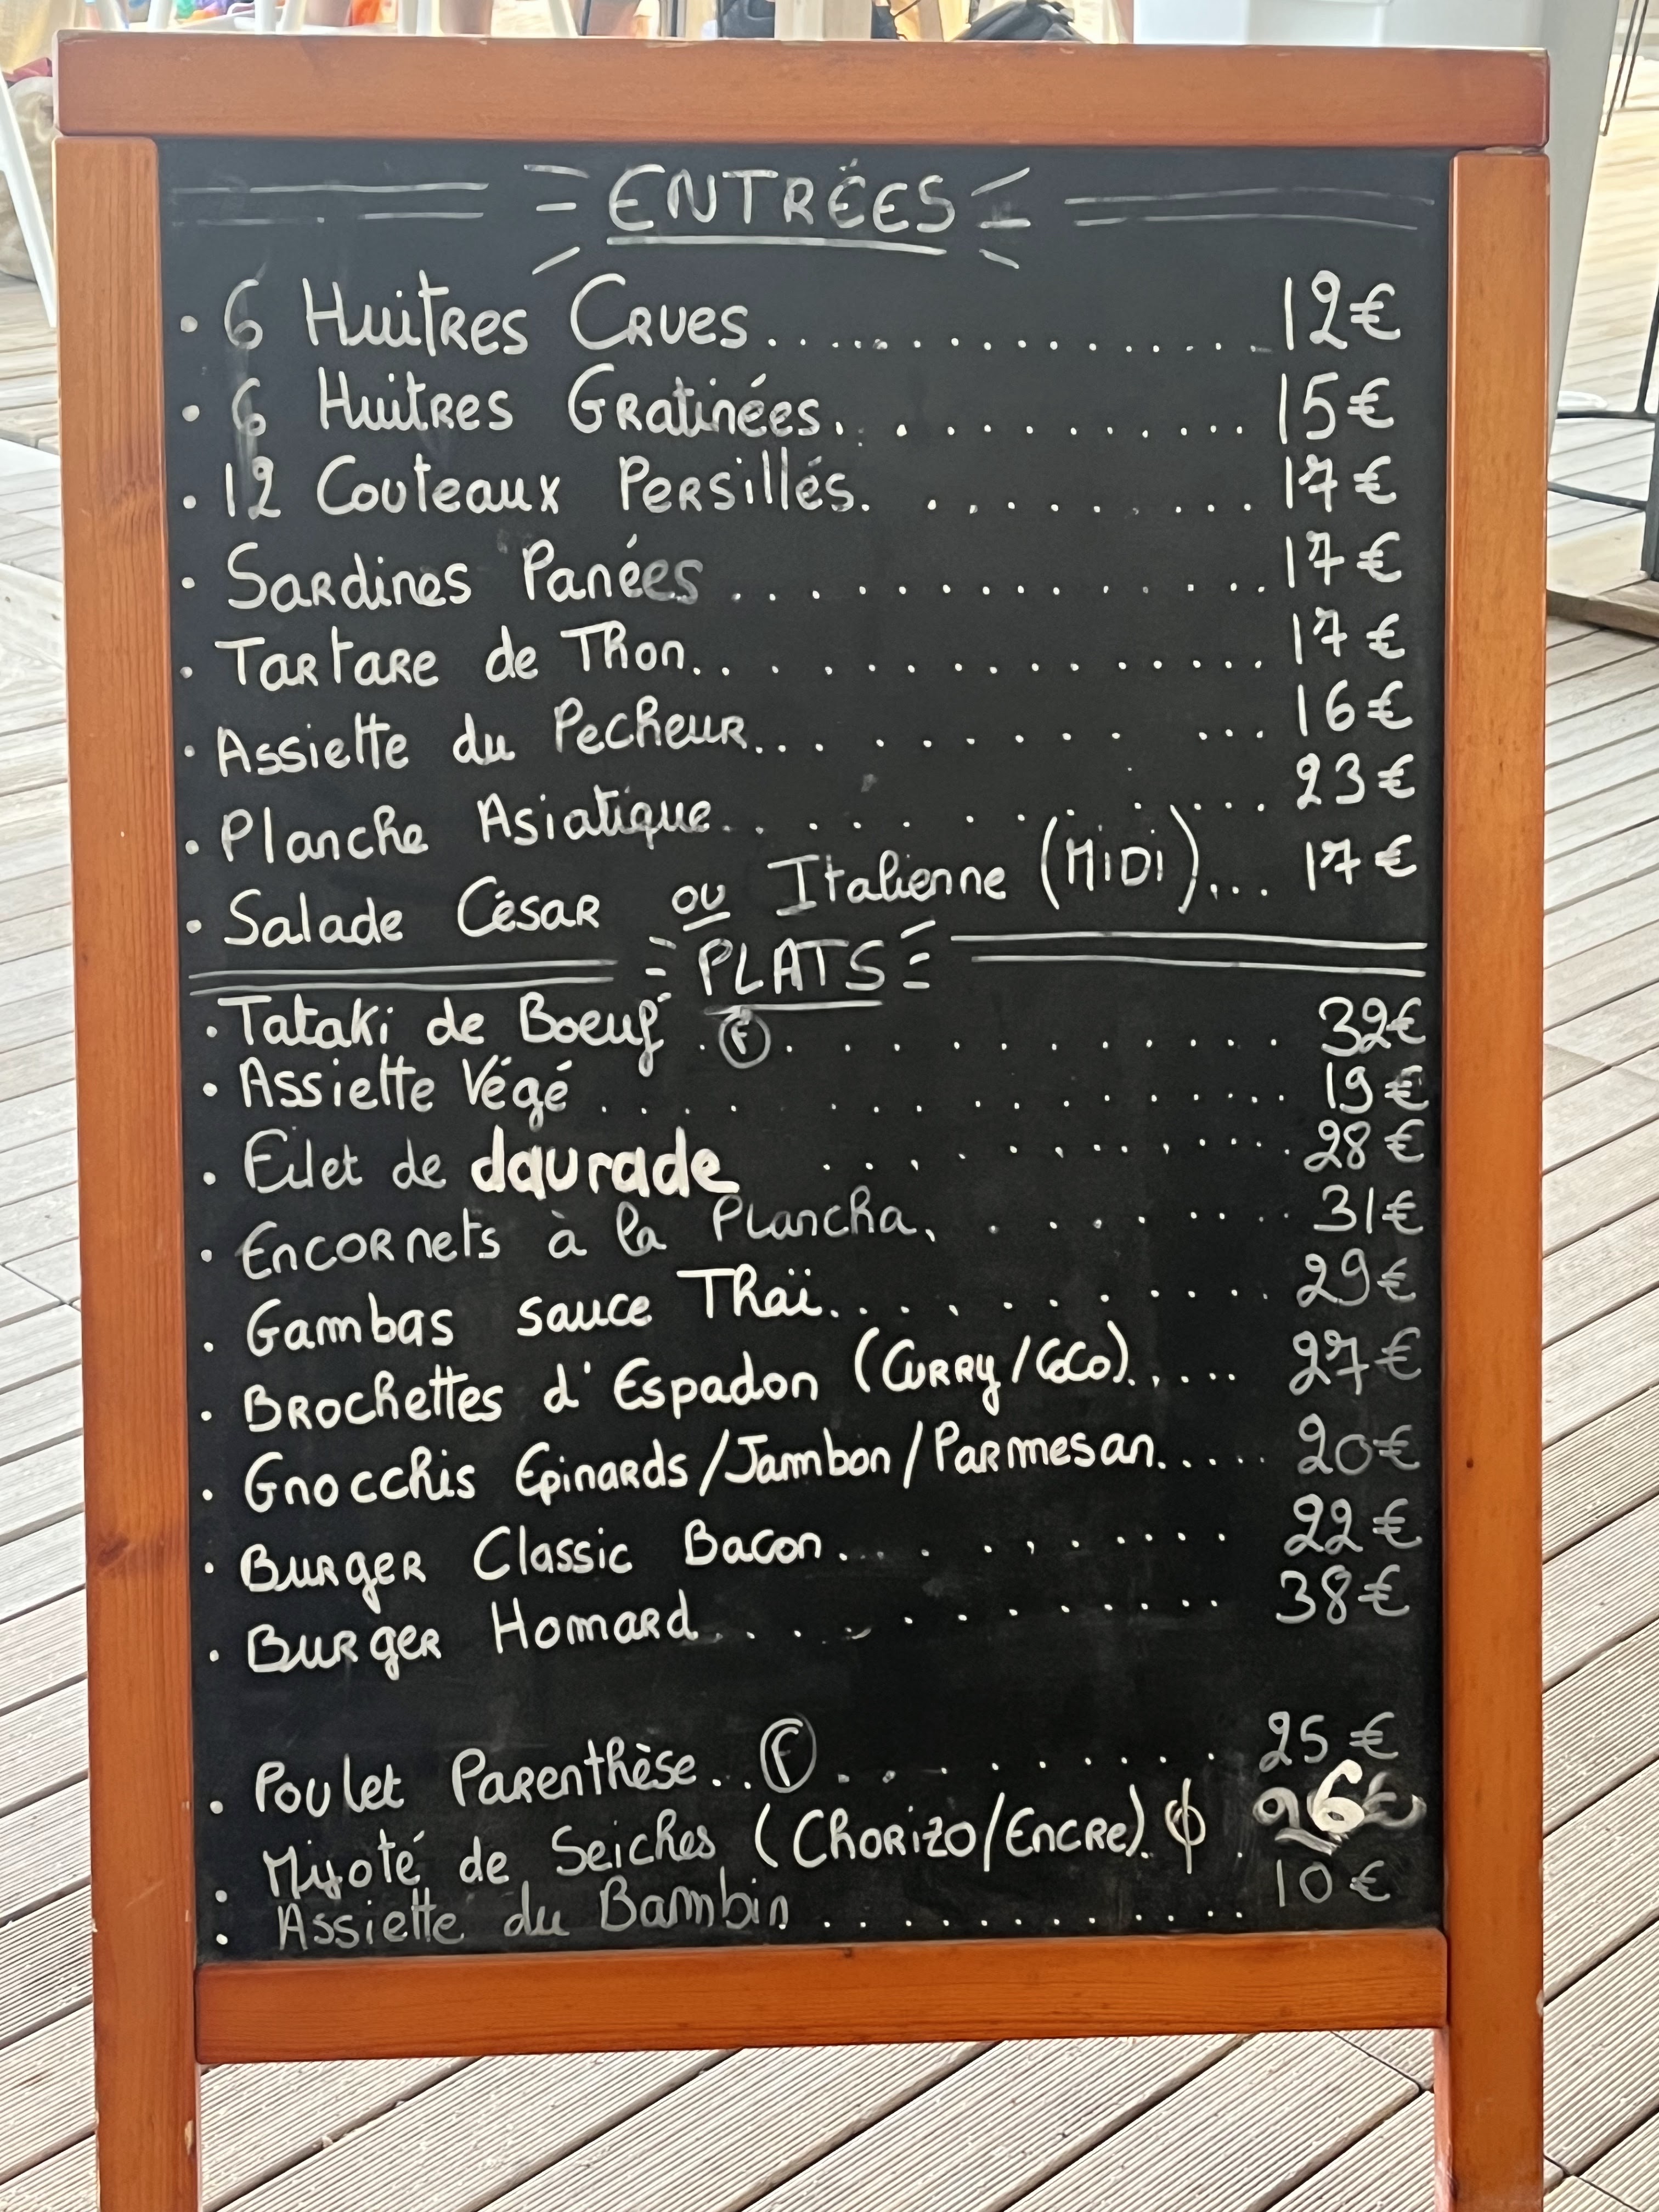 ENTRÉES
• 6 Huitres Crues.................12€
• 6 Huitres Gratinées.............15€
• 12 Couteaux Persillés...........17€
• Sardines Panées.................17€
• Tartare de Thon.................17€
• Assiette du Pecheur.............16€
• Planche Asiatique...............23€
• Salade César ou Italienne (Midi)... 17€
PLATS
• Tataki de Boeuf . Ⓕ............. 32€
• Assiette Végé .................. 19€
• Filet de daurade ............... 28€
• Encornets à la Plancha.......... 31€
• Gambas sauce Thaï............... 29€
• Brochettes d'Espadon (Curry/Coco)..... 27€
• Gnocchis Epinards/Jambon/Parmesan..... 20€
• Burger Classic Bacon............ 22€
• Burger Homard................... 38€
• Poulet Parenthèse.. Ⓕ........... 25€
• Mijoté de Seiches (Chorizo/Encre). . 26€
• Assiette du Bambin ............. 10€